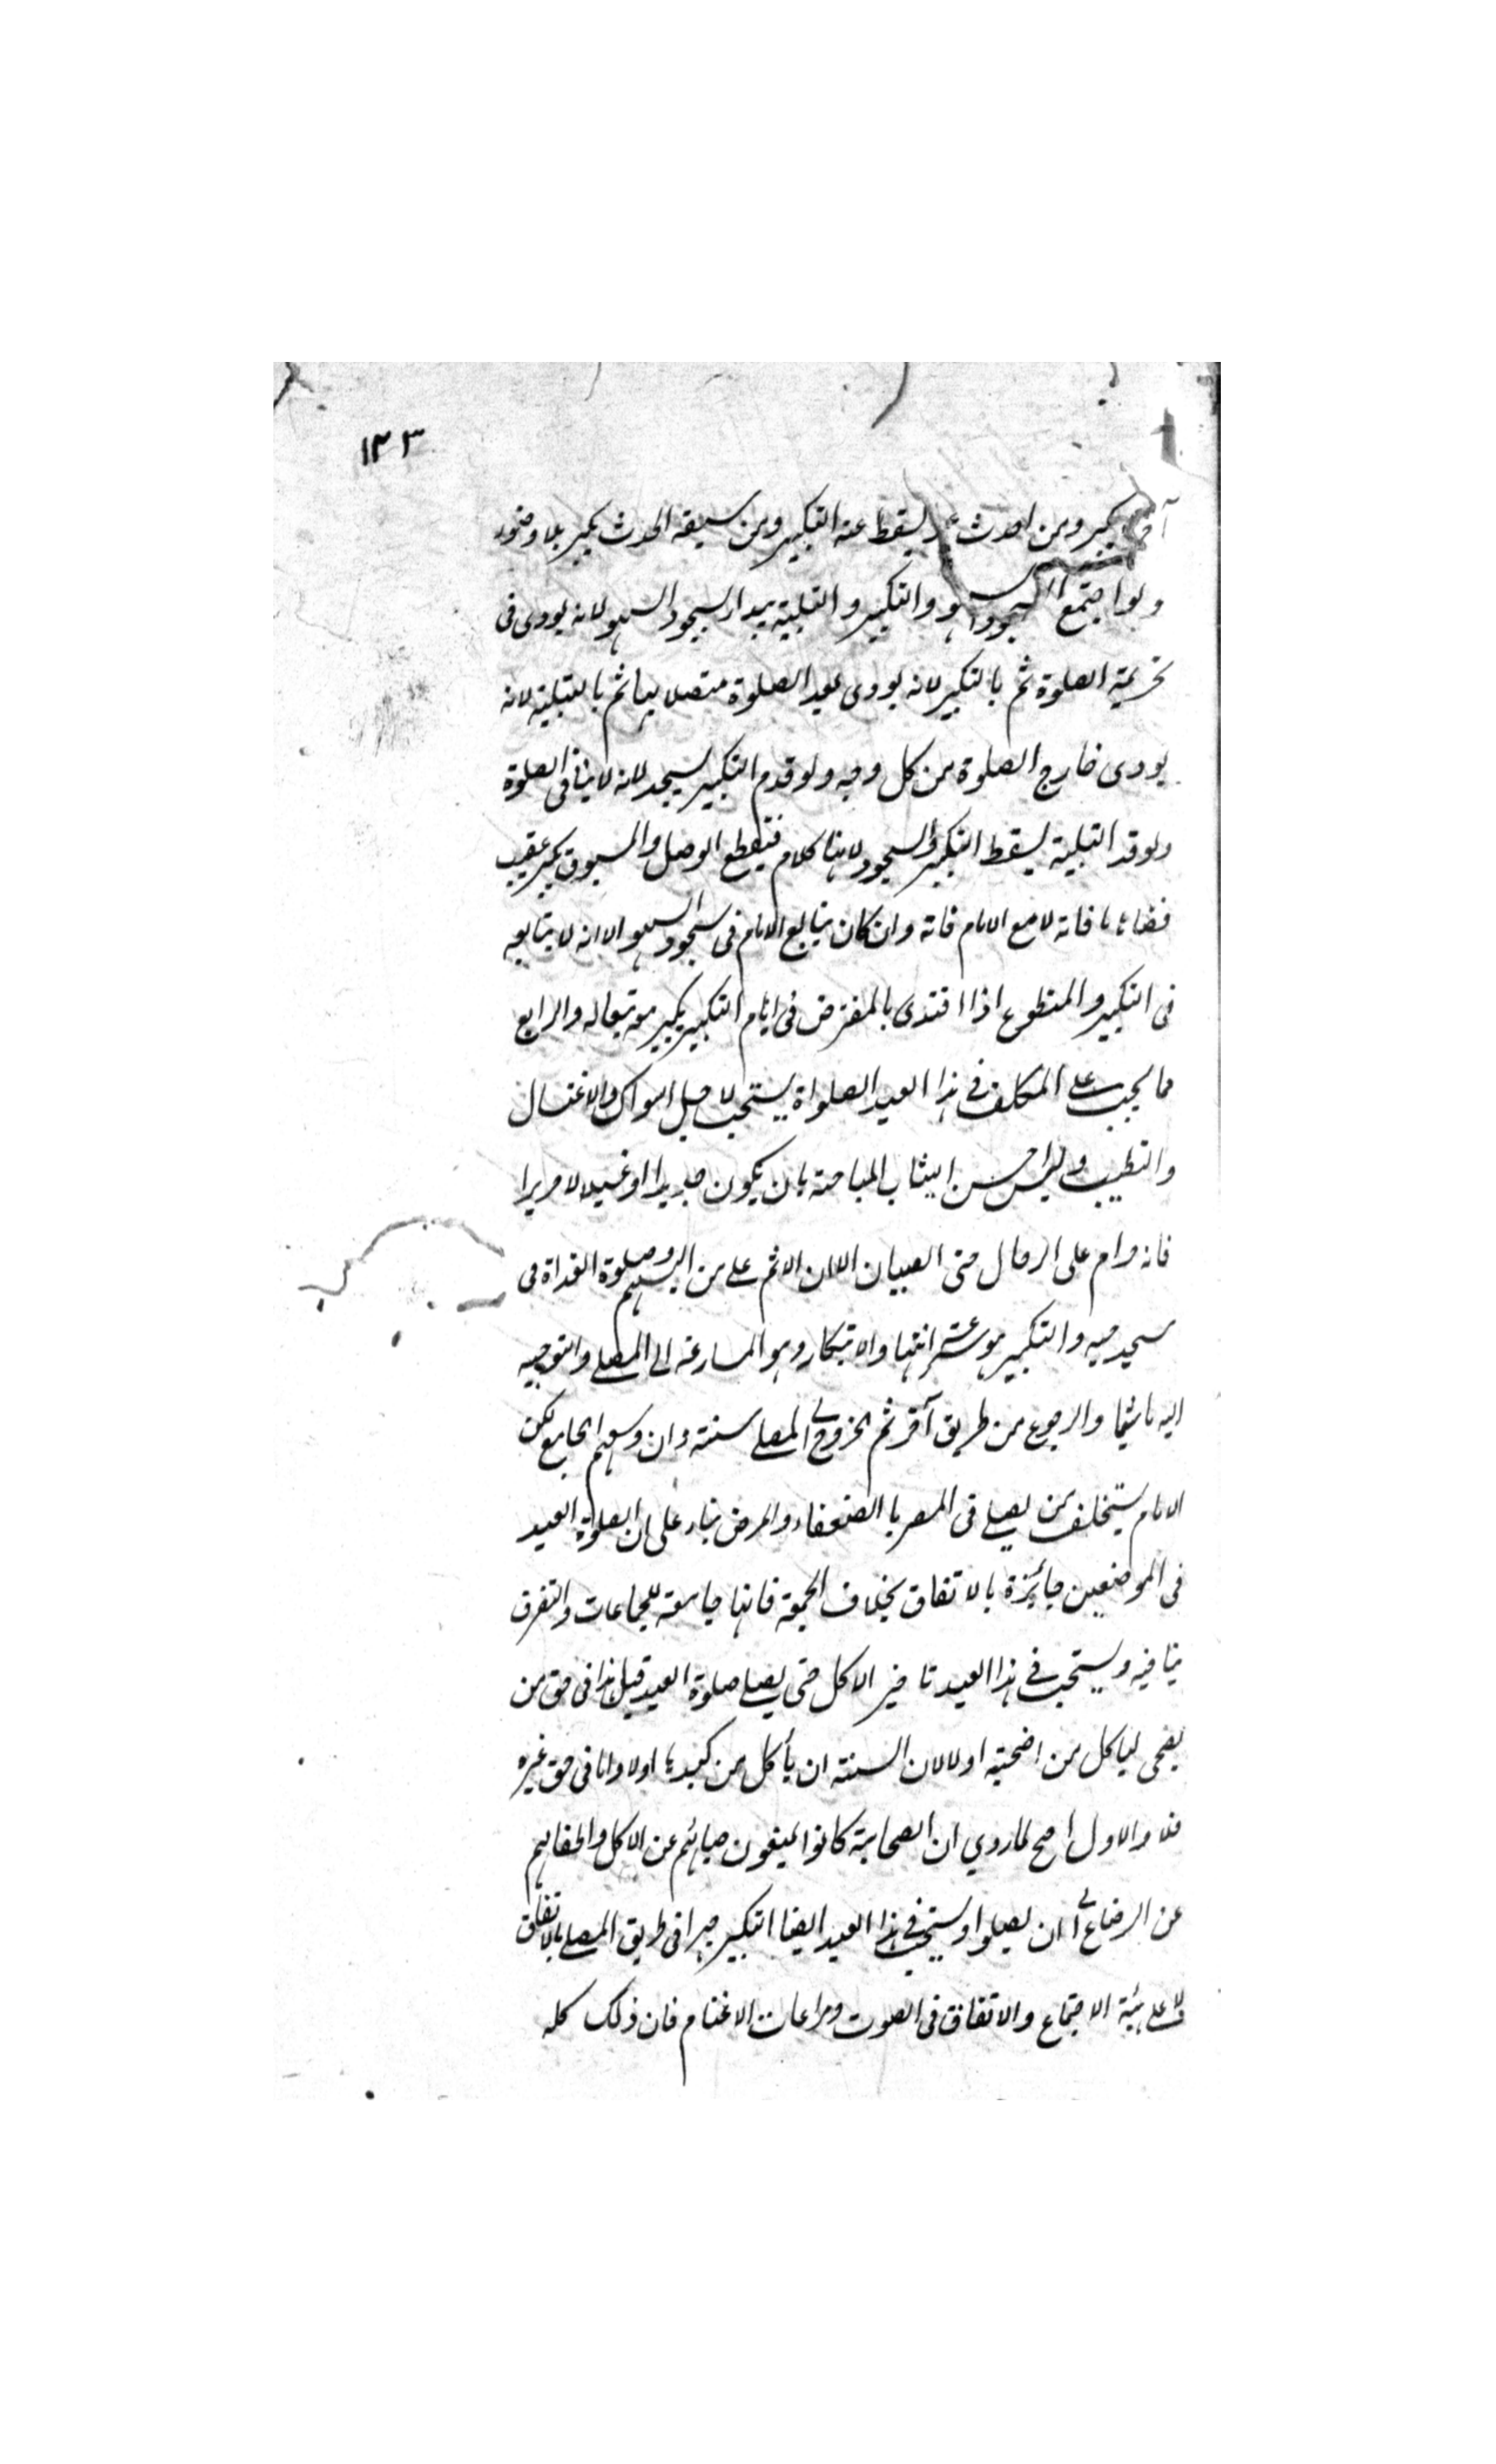 ١٢٣
آخر يكبر ومن احدث يسقط عنه التكبير ومن سبقه الحدث يكبر بلا وضوء
ولو اجتمع السجود السهو والتكبير والتلبية يبدأ بسجود السهو لانه يودى فى
تحريمة الصلوة ثم بالتكبير لانه يودى بعيد الصلوة متصلا بها ثم بالتلبية لانه
يودى خارج الصلوة من كل وجه ولو قدم التكبير يسجد لانه لا ينافى الصلوة
ولو قدم التلبية يسقط التكبير والسجود لانها كلام فيقطع الوصل والمسبوق يكبر عقيب
قضاء ما فاته لا مع الامام فاته وان كان يتابع الامام فى سجود السهو الا انه لا يتابعه
فى التكبير والمتطوع اذا اقتدى بالمفترض فى ايام التكبير يكبر معه تبعا له والرابع
مما يجب على المكلف فى هذا العيد الصلواة يستحب لاجل السواك والاغتسال
والتطيب ولبس احسن الثياب المباحة بان يكون جديدا او غسيلا لا حريرا
فانه حرام على الرجال حتى الصبيان الا ان الاثم على من البسهم وصلوة الغداة فى
مسجد حيه والتكبير هو سرعة انتباه والابتكار وهو المسارعة الى المصلى والتوجه
اليه ماشيا والرجوع من طريق آخر ثم الخروج الى المصلى سنة وان وسعهم الجامع لكن
الامام يستخلف من يصلى فى المصر بالضعفاء والمرضى بناء على ان الصلوة العيد
فى الموضعين جائزة بالاتفاق بخلاف الجمعة فانها جامعة للجماعات والتفرق
ينافيه ويستحب فى هذا العيد تاخير الاكل حتى يصلى صلوة العيد قيل هذا فى حق من
يضحى لياكل من اضحيته اولا لان السنة ان يأكل من كبدها اولا واما فى حق غيره
فلا والاول اصح لما روي ان الصحابة كانوا يمنعون صبيانهم عن الاكل واطفالهم
عن الرضاع الى ان يصلوا ويستحب فى هذا العيد ايضا التكبير جهرا فى طريق المصلى بالاتفاق
لا على هيئة الاجتماع والاتفاق فى الصوت ومراعات الاغتنام فان ذلك كله